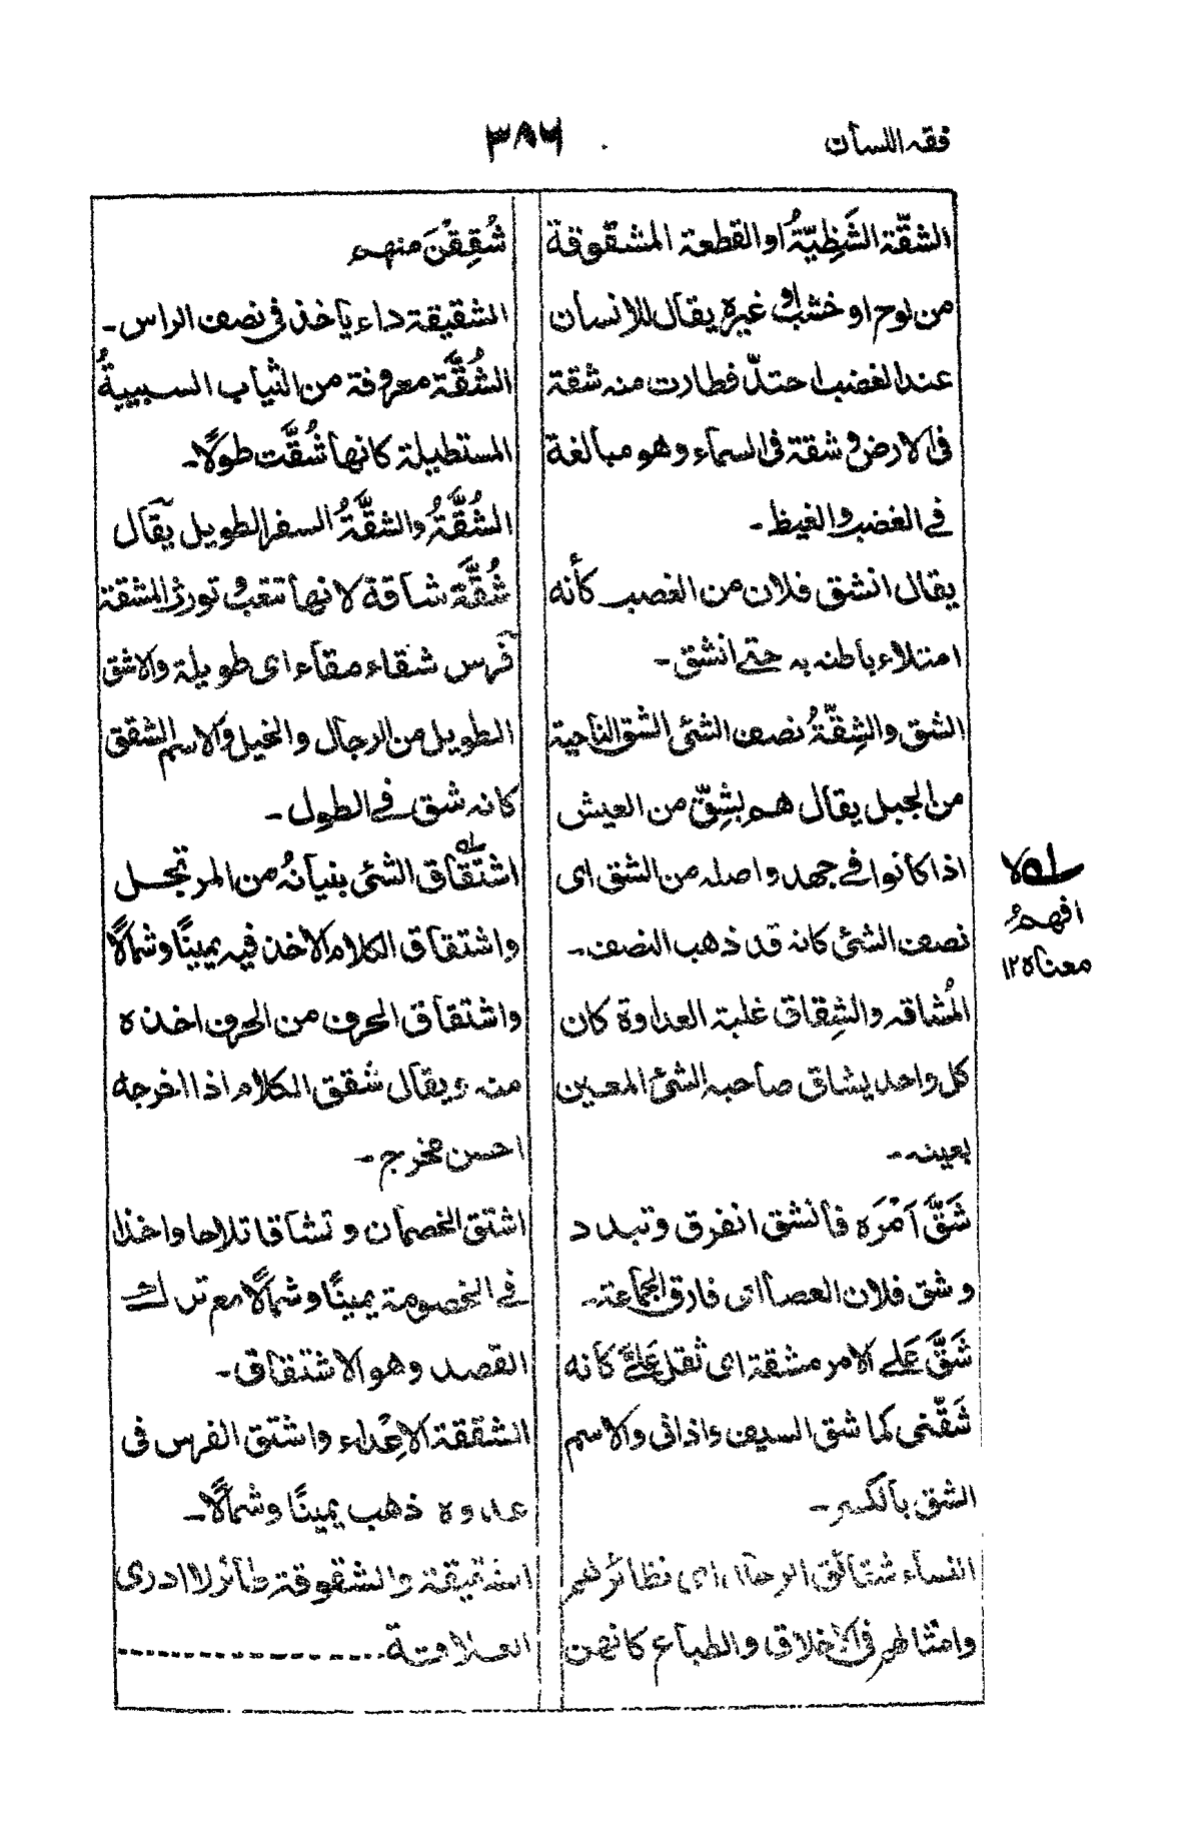 فقه اللسان
٣٨٦
الشقّة الشَظِيّةُ او القطعة المشقوقة
من لوح او خشب او غيره يقال للانسان
عند الغضب احتدّ فطارت منه شقة
فى الارض و شقة فى السماء وهو مبالغة
فے الغضب والغيظ۔
يقال انشق فلان من الغضب كأنه
امتلاء باطنه به حتے انشق۔
الشق والشِقّةُ نصف الشئ الشق الناحية
من الجبل يقال هم بشِقّ من العيش
اذا كانوا فے جهد واصله من الشق اى
نصف الشئ كانه قد ذهب النصف۔
المُشاقه والشِقاق غلبة العداوة كان
كل واحد يشاق صاحبه الشئ المعين
بعينه۔
شَقَّ اَمْرَه فانشق انفرق وتبدد
وشق فلان العصا اى فارق الجماعة۔
شَقَّ عَلے الامر مشقة اى ثقل عَلَےَّ كأنه
شَقّنى كما شق السيف واذانى والاسم
الشق بالكسر۔
النساء شقائق الرجال اى نظائرهم
وامثالهم فى الاخلاق والطباع كانهن
شُقِقْنَ منهم
الشقيقة داء ياخذ فى نصف الراس۔
الشُقَّة معروفة من الثياب السبيبةُ
المستطيلة كانها شُقَّت طولًا۔
الشُقَّةُ والشقَّةُ السفر الطويل يقال
شُقَّة شاقة لانها تتعب و تورث المشقة
فرس شقاء مقاء اى طويلة والاشق
الطويل من الرجال والخيل والاسم الشقق
كانه شق فے الطول۔
اشتقاق الشئ بنيانُه من المرتجل
واشتقاق الكلام الاخذ فيه يمينًا وشمالًا
واشتقاق الحرف من الحرف اخذه
منه ويقال شقق الكلام اذا اخرجه
احسن مخرج۔
اشتق الخصمان وتشاقا تلاحا واخذا
فے الخصومة يمينًا وشمالًا مع ترك
القصد وهو الاشتقاق۔
الشققة الاعداء واشتق الفرس فى
عدوه ذهب يمينًا وشمالًا۔
الشقيقة والشقوقة طائر لا ادرى
العلامة
افهم
معناه ١٢